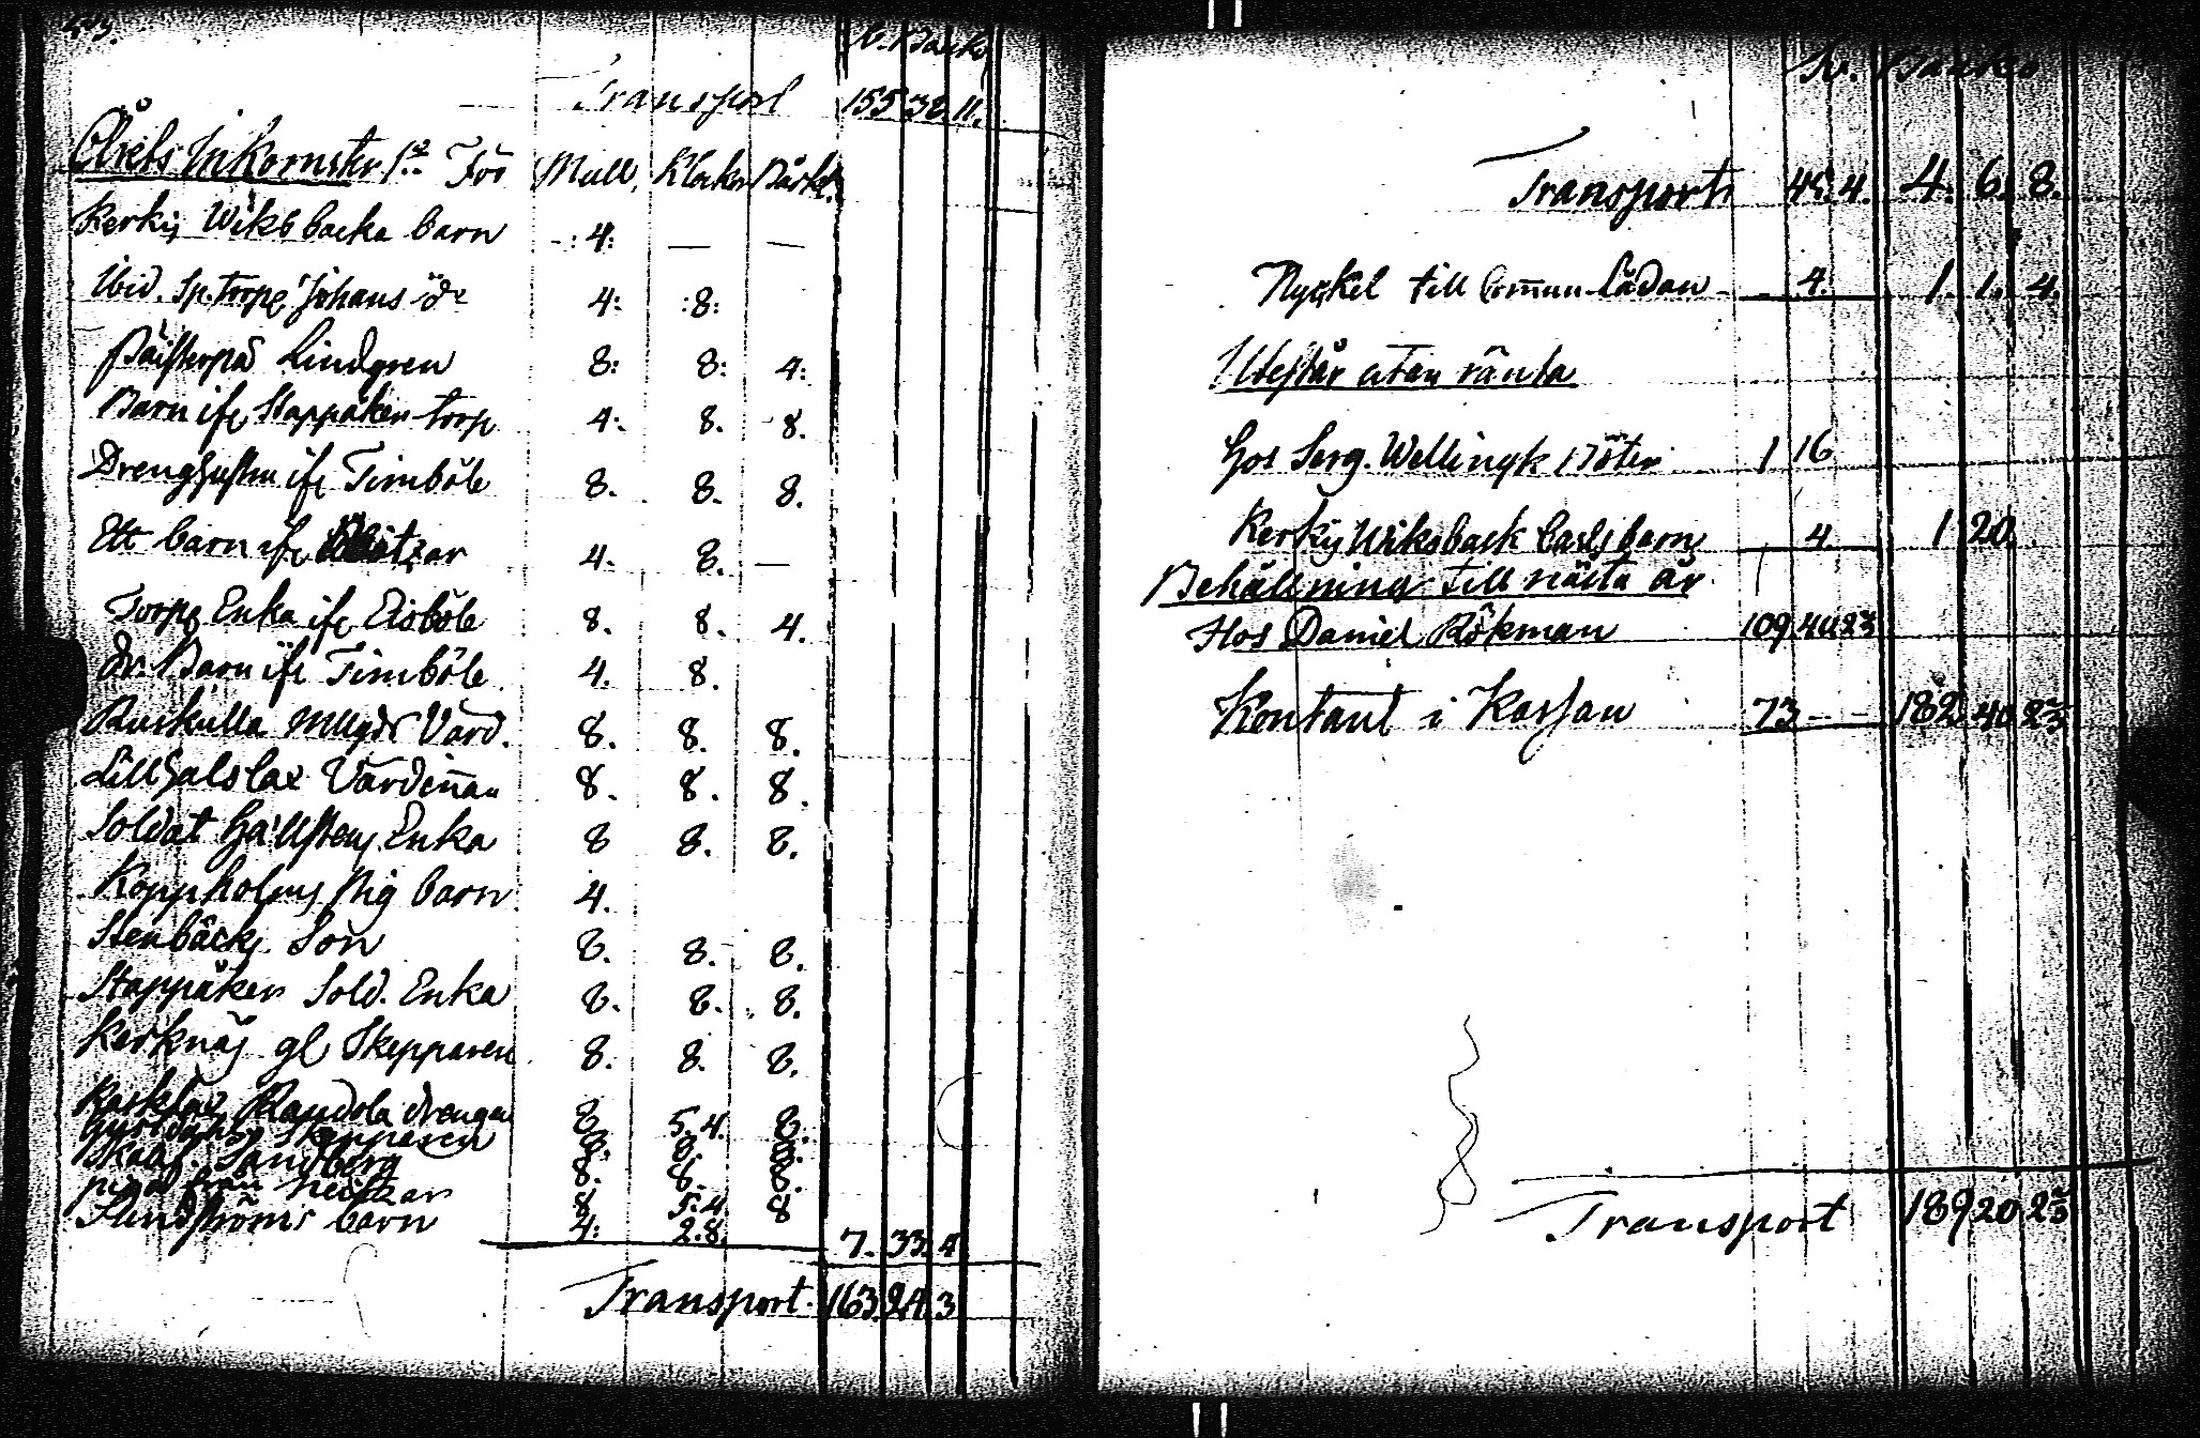 R. Banko
Transport 155 32. 11.
Årets Inkomster 1º För Mull, Klockor Bårkl.
Kerkis Wiksbacka barn -: 4: — —
Ibid. Sp. torpe Johans 4: :8:
Lindgren 8: 8: 4:
Barn ifr Stappåker torp 4: 8. 8.
Drenghustru ifr Timböle 8. 8. 8.
Ett barn ifr 4. 8. —
Torps Enka ifr Eisböle 8. 8. 4.
Dr. Barn ifr Timböle 4. 8.
Ruskulla Vård. 8. 8. 8.
Lill Halslax Värdiñan 8. 8. 8.
Soldat Hällstens Enka 8 8. 8.
Koppholms Pig barn 4.
Stenbäcks Son 8. 8. 8.
Stappåker Sold. Enka 8. 8. 8.
Kerknäs gl Skepparen 8. 8. 8.
Rasklax Randola drengen 8. 5.4. 8.
Skepparen 8. 8. 8.
Sandberg 8. 8. 8.
från 8 5.4 8
Sundströms barn 4: 2.8. 7. 33. 4
Transport. 163. 24. 3
R. Banko
Transport 4. 4. 6. 8.
Nyckel till Com̄un Lådan - - 4. 1. 1. 4.
Utestår utan ränta
Hos Serg. Wellingk 1 16
Kerkis Wiksback Carls barn 4. 1 20.
Behållning till nästa år
Hos Daniel Rökman 109. 40 23
Kontant i Kassan 73 - - 182. 40 23
Transport 189 20 23